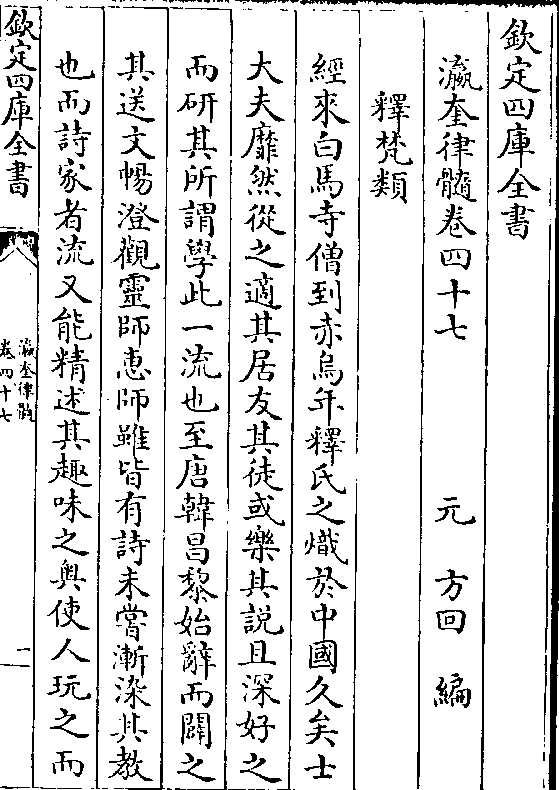 欽定四庫全書
瀛奎律髓卷四十七　元　方回　編
釋梵類
經來白馬寺僧到赤烏年釋氏之熾於中國久矣士
大夫靡然從之適其居友其徒或樂其説且深好之
而研其所謂學此一流也至唐韓昌黎始辭而闢之
其送文暢澄觀靈師惠師雖皆有詩未嘗漸染其教
也而詩家者流又能精述其趣味之奥使人玩之而
欽定四庫全書
瀛奎律髓
卷四十七
一